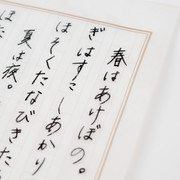 春はあけぼの。
ぎはすこしあかり
ほそくたなびきた
夏は夜。
はた